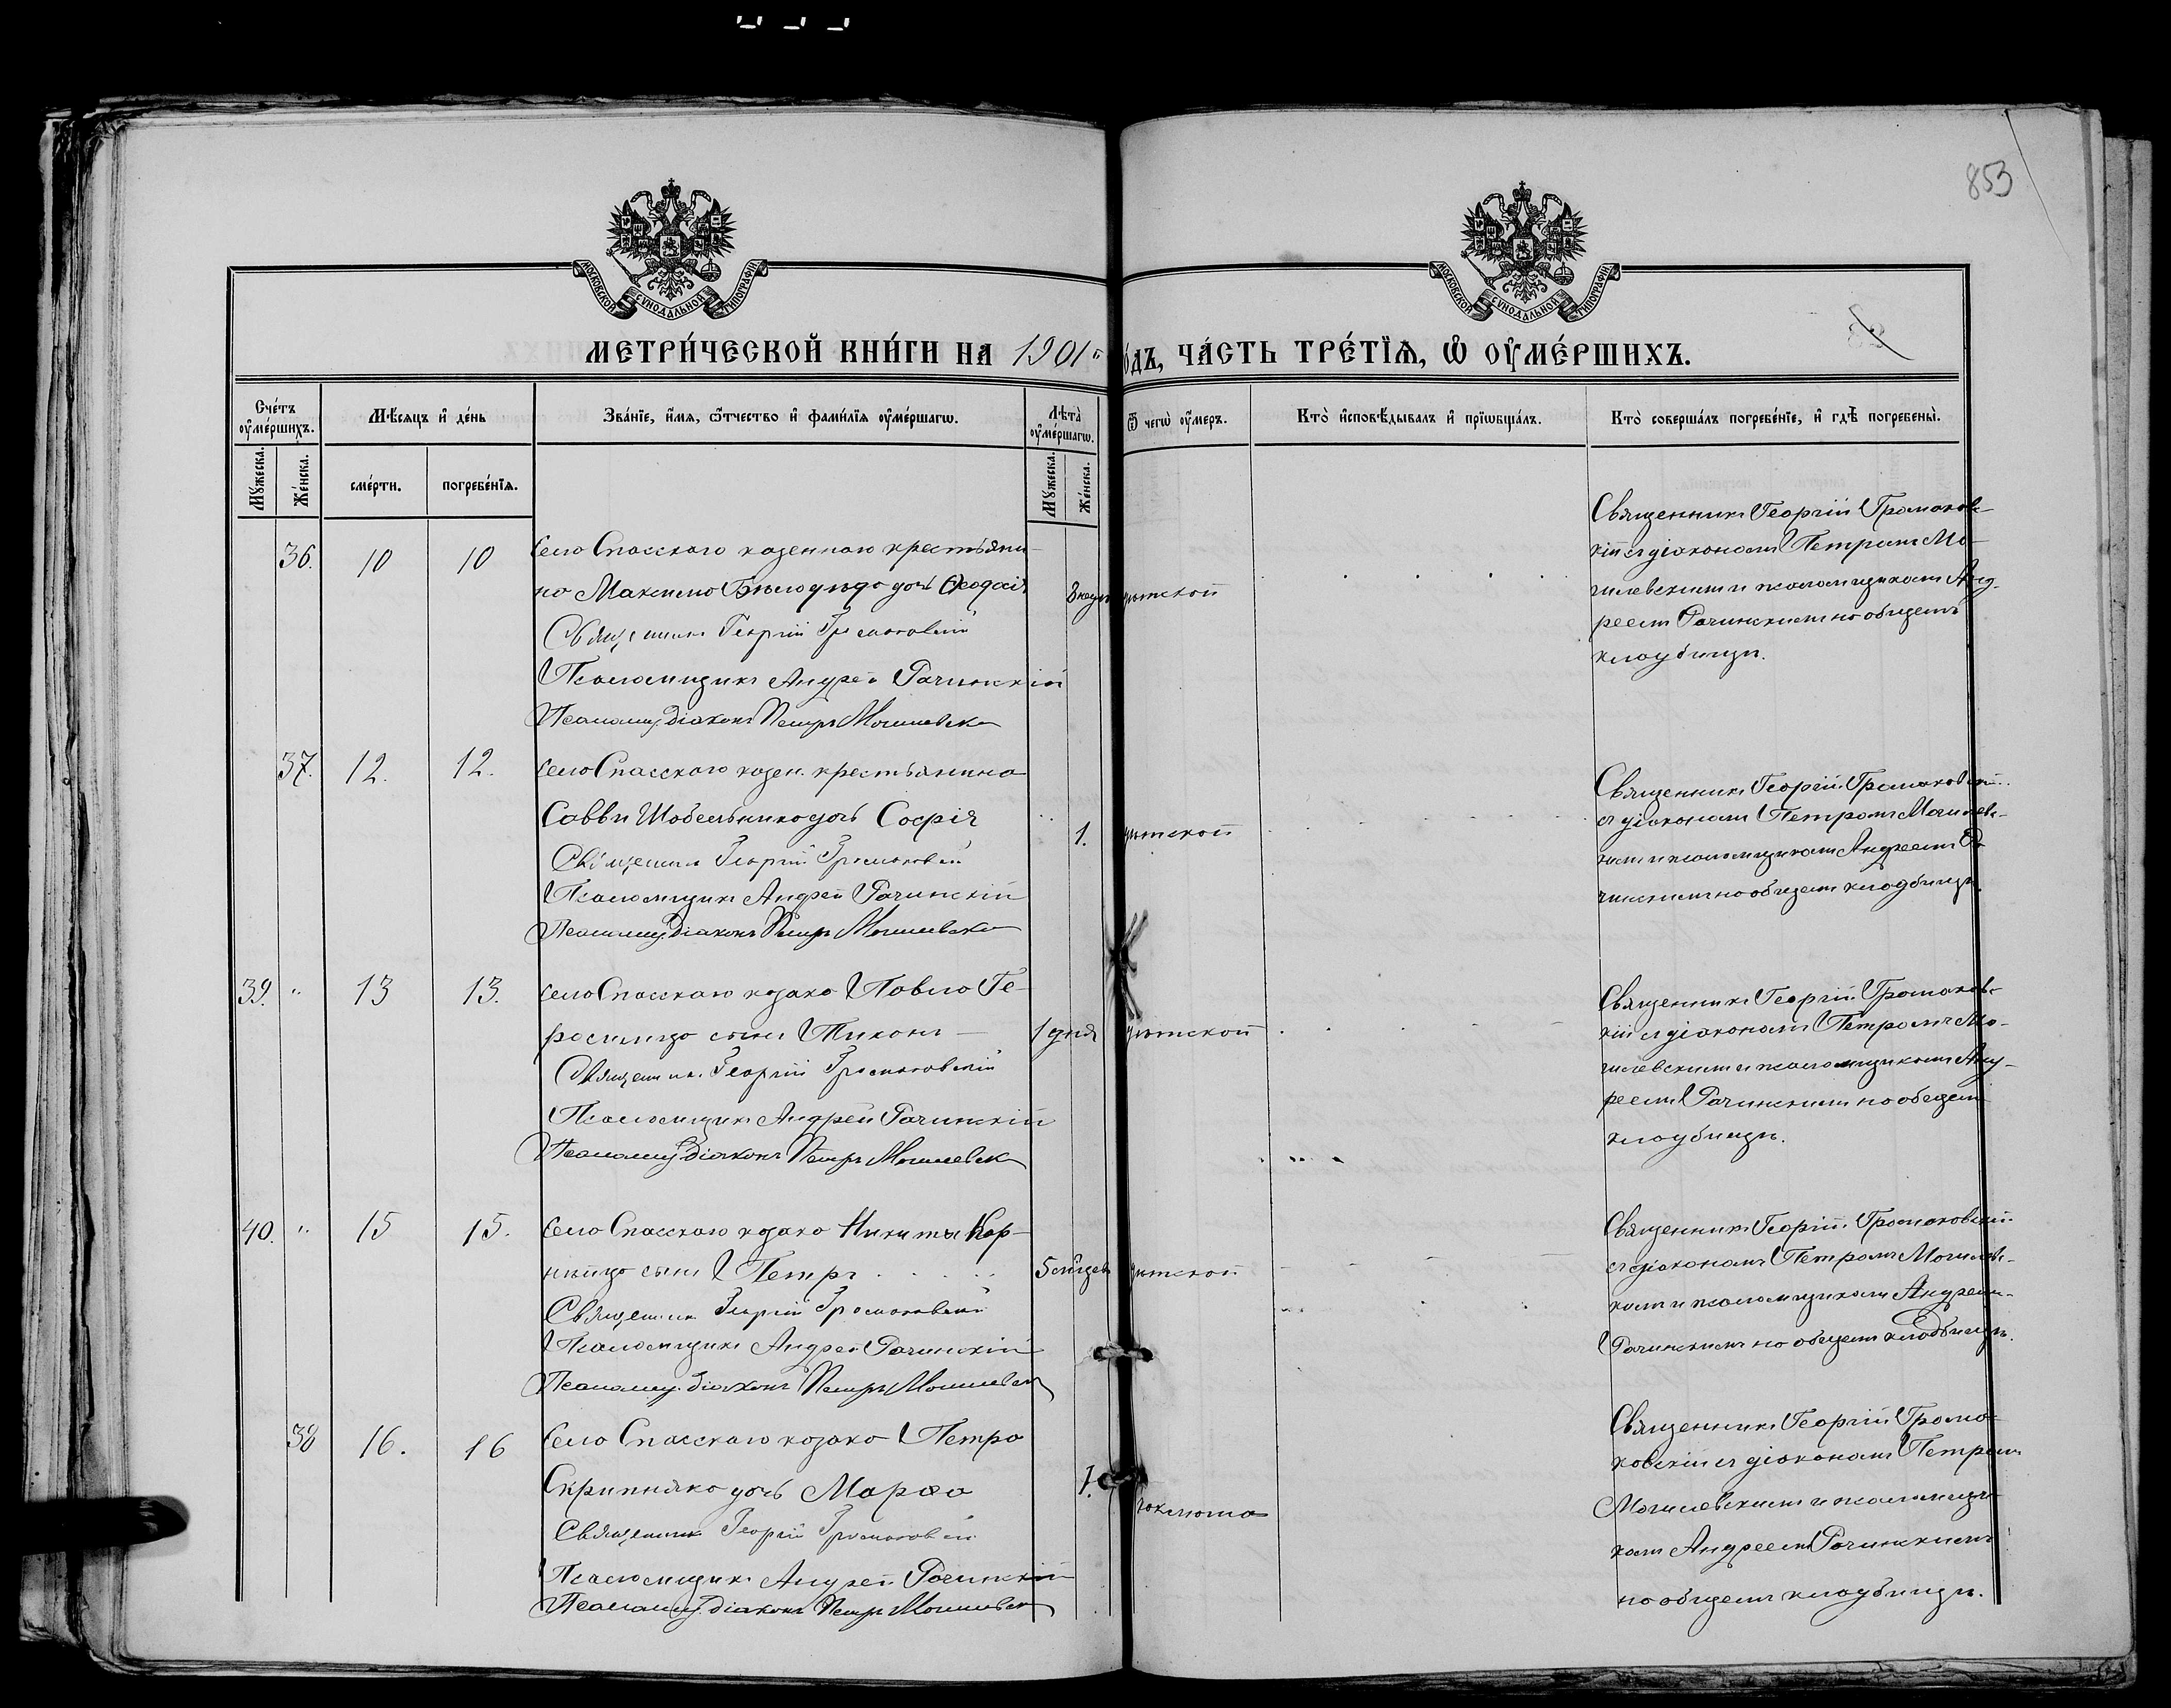 853
МОСКОВСКОЙ СѴНОДАЛЬНОЙ ТИПОГРАФІИ
МОСКОВСКОЙ СѴНОДАЛЬНОЙ ТИПОГРАФІИ
МЕТРИ́ЧЕСКОЙ КНИ́ГИ НА 1901 г
о́дъ, ЧА́СТЬ ТРЕ́ТІѦ, Ѡ҆ ОУ҆МЕ́РШИХЪ.
Сче́тъ оу҆ме́ршихъ.
Мѣ́сяцъ и҆ де́нь
Зва́нїе, и҆́мя, ѻ҆́тчество и҆ фами́лїя оу҆ме́ршагѡ.
Лѣ́та̀ оу҆ме́ршагѡ.
Ѿ чегѡ̀ оу҆́меръ.
Кто̀ и҆сповѣ́дывалъ и҆ прїѡбща́лъ.
Кто̀ соверша́лъ погребе́нїе, и҆ гдѣ̀ погребены̀.
Мꙋ́жеска.
Же́нска.
сме́рти.
погребе́нїя.
Мꙋ́жеска.
Же́нска.
36. 10 10
Села Спасскаго казеннаго крестьяни-
на Максима Бѣлодѣда дочь Ѳеодосія
3 недѣл дѣтской
Священникъ Георгій Громаковскій
Псаломщикъ Андрей Рачинскій
Псаломщ. діаконъ Петръ Могилевск
Священникъ Георгій Громаков-
кій съ діакономъ Петромъ Мо-
гилевскимъ и псаломщикомъ Анд-
реемъ Рачинскимъ на общемъ
кладбищѣ.
37. 12. 12.
Села Спасскаго казен. крестьянина
Саввы Шабельника дочь Софія
1. дѣтской
Священник Георгій Громаковскій
Псаломщикъ Андрей Рачинскій
Псаломщ. діаконъ Петръ Могилевск
Священникъ Георгій Громаковскій
съ діакономъ Петромъ Могилевс-
кимъ и псаломщикомъ Андреемъ Ра
чинскимъ на общемъ кладбищѣ.
39. " 13 13.
Села Спасскаго козака Павла Ге-
расимца сынъ Тихонъ
1 дня дѣтской
Священникъ Георгій Громаковскій
Псаломщикъ Андрей Рачинскій
Псаломщ. діаконъ Петръ Могилевск
Священникъ Георгій Громаковс-
кій съ діакономъ Петромъ Мо-
гилевскимъ и псаломщикомъ Анд-
реемъ Рачинскимъ на общемъ
кладбищѣ.
40. " 15 15.
Села Спасскаго козака Никиты Кор-
сынъ Петръ
5 дѣтской
Священник Георгій Громаковскій
Псаломщикъ Андрей Рачинскій
Псаломщ. діаконъ Петръ Могилевск
Священникъ Георгій Громаковскій
съ діакономъ Петромъ Могилевс-
кимъ и псаломщикомъ Андреемъ
Рачинскимъ на общемъ кладбищѣ.
38 16. 16
Села Спасскаго козака Петра
Скрипняка дочь Марѳа
1. коклюша
Священник Георгій Громаковскій
Псаломщикъ Андрей Рачинскій
Псаломщ. діаконъ Петръ Могилевск
Священникъ Георгій Грома-
ковскій съ діакономъ Петромъ
Могилевскимъ и псаломщи-
комъ Андреемъ Рачинскимъ
на общемъ кладбищѣ.